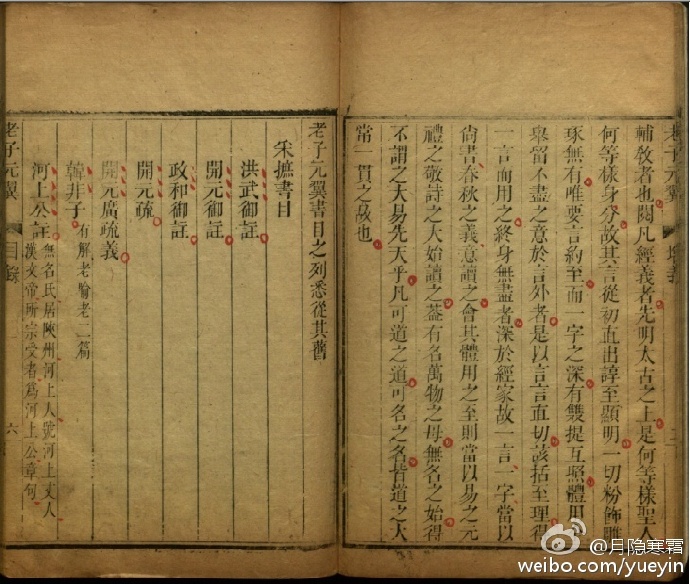 輔敎者也閱凡經義者先明太古之上是何等樣聖人
何等樣身分故其言從初直出諄至顯明一切粉飾雕
琢無有唯要言約至而一字之深有雙提互照體用
舉留不盡之意於言外者是以言言直切該括至理得
一言而用之終身無盡者深於經家故一言一字當以
尙書春秋之義意讀之會其體用之至則當以易之元
禮之敬詩之大始讀之葢有名萬物之母無名之始得
不謂之大易先天乎凡可道之道可名之名皆道之大
常一貫之故也
老子元翼書目之列悉從其舊
采摭書目
洪武御註
開元御註
政和御註
開元疏
開元廣疏義
韓非子 有解老喻老二篇
河上公註 無名氏居陝州河上人號河上丈人
漢文帝所宗受者爲河上公章句
老子元翼 目錄 六
@月隐寒霜
weibo.com/yueyin